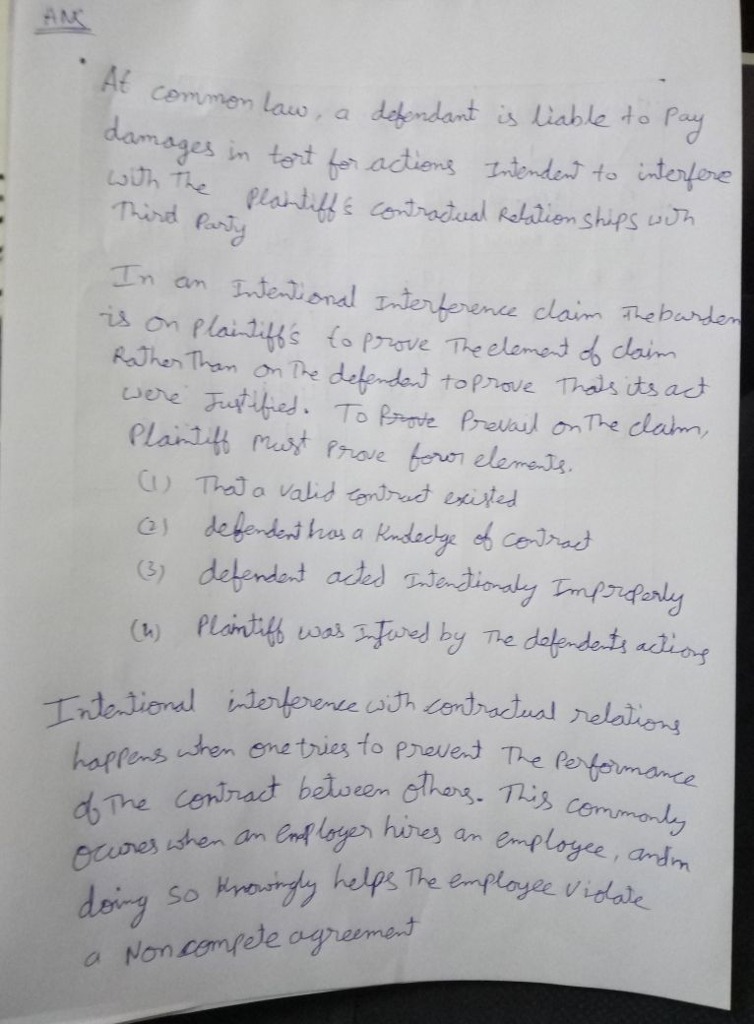 ANS
At common law, a defendant is liable to Pay
damages in tort for actions Intendent to interfere
with The Plaintiff's contractual Relationships with
Third Party
In an Intentional Interference claim The burden
is on plaintiff's to prove The element of claim
Rather Than on The defendent to prove Thats its act
were Justified. To Prove Prevail on The claim,
Plaintiff Must Prove four elements.
(1) That a valid contract existed
(2) defendent has a kndedge of contract
(3) defendent acted Intenctionaly Improperly
(4) Plaintiff was Injured by The defendents actions
Intentional interference with contractual relations
happens when one tries to prevent The Performance
of The contract between others. This commonly
occures when an Employer hires an employee, and in
doing so knowingly helps The employee violate
a Non compete agreement